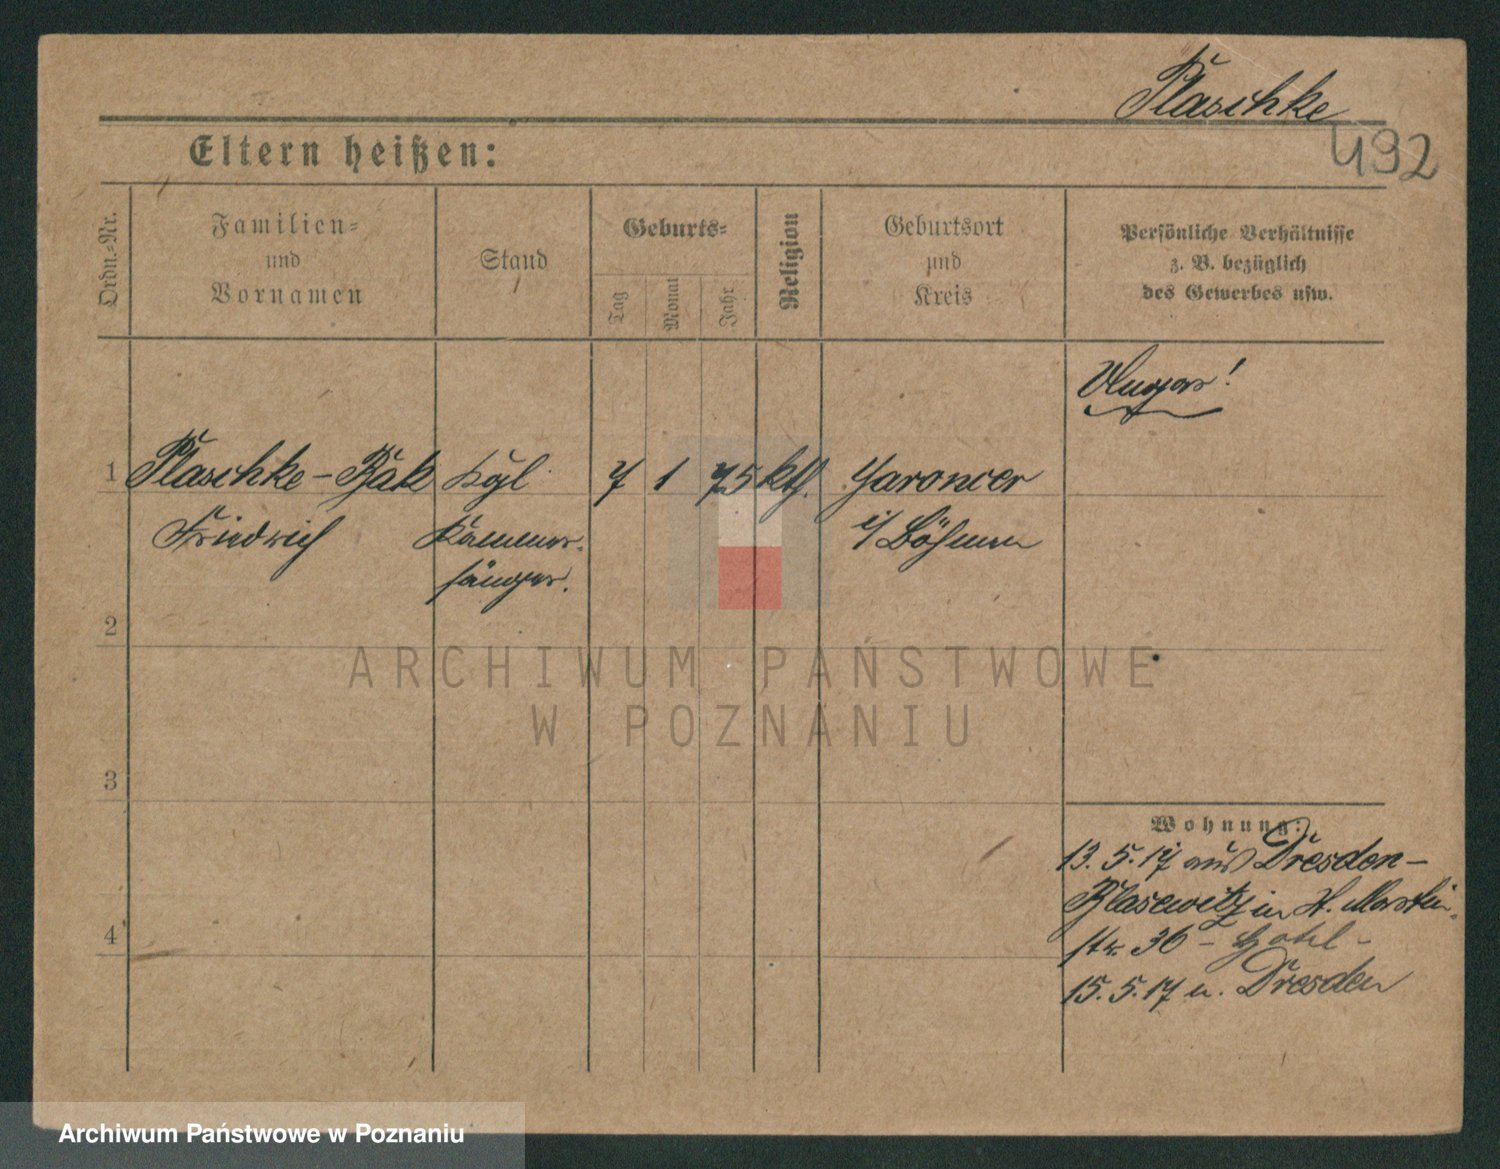 Plaschke
492
Eltern heißen:
Ordn.-Nr.
Familien-
und
Vornamen
Stand
Geburts-
Tag
Monat
Jahr
Religion
Geburtsort
und
Kreis
Persönliche Verhältnisse
z. B. bezüglich
des Gewerbes usw.
1 Plaschke - Bäk Kgl. 7 1 75 kth. Jaromer
Friedrich Kammer- i/ Böhmen
sänger.
2
3
4
Wohnung:
13. 5. 17 aus Dresden-
Blasewitz in H. Martin-
str. 36 - Hotel -
15. 5. 17 n. Dresden
ARCHIWUM PAŃSTWOWE
W POZNANIU
Archiwum Państwowe w Poznaniu